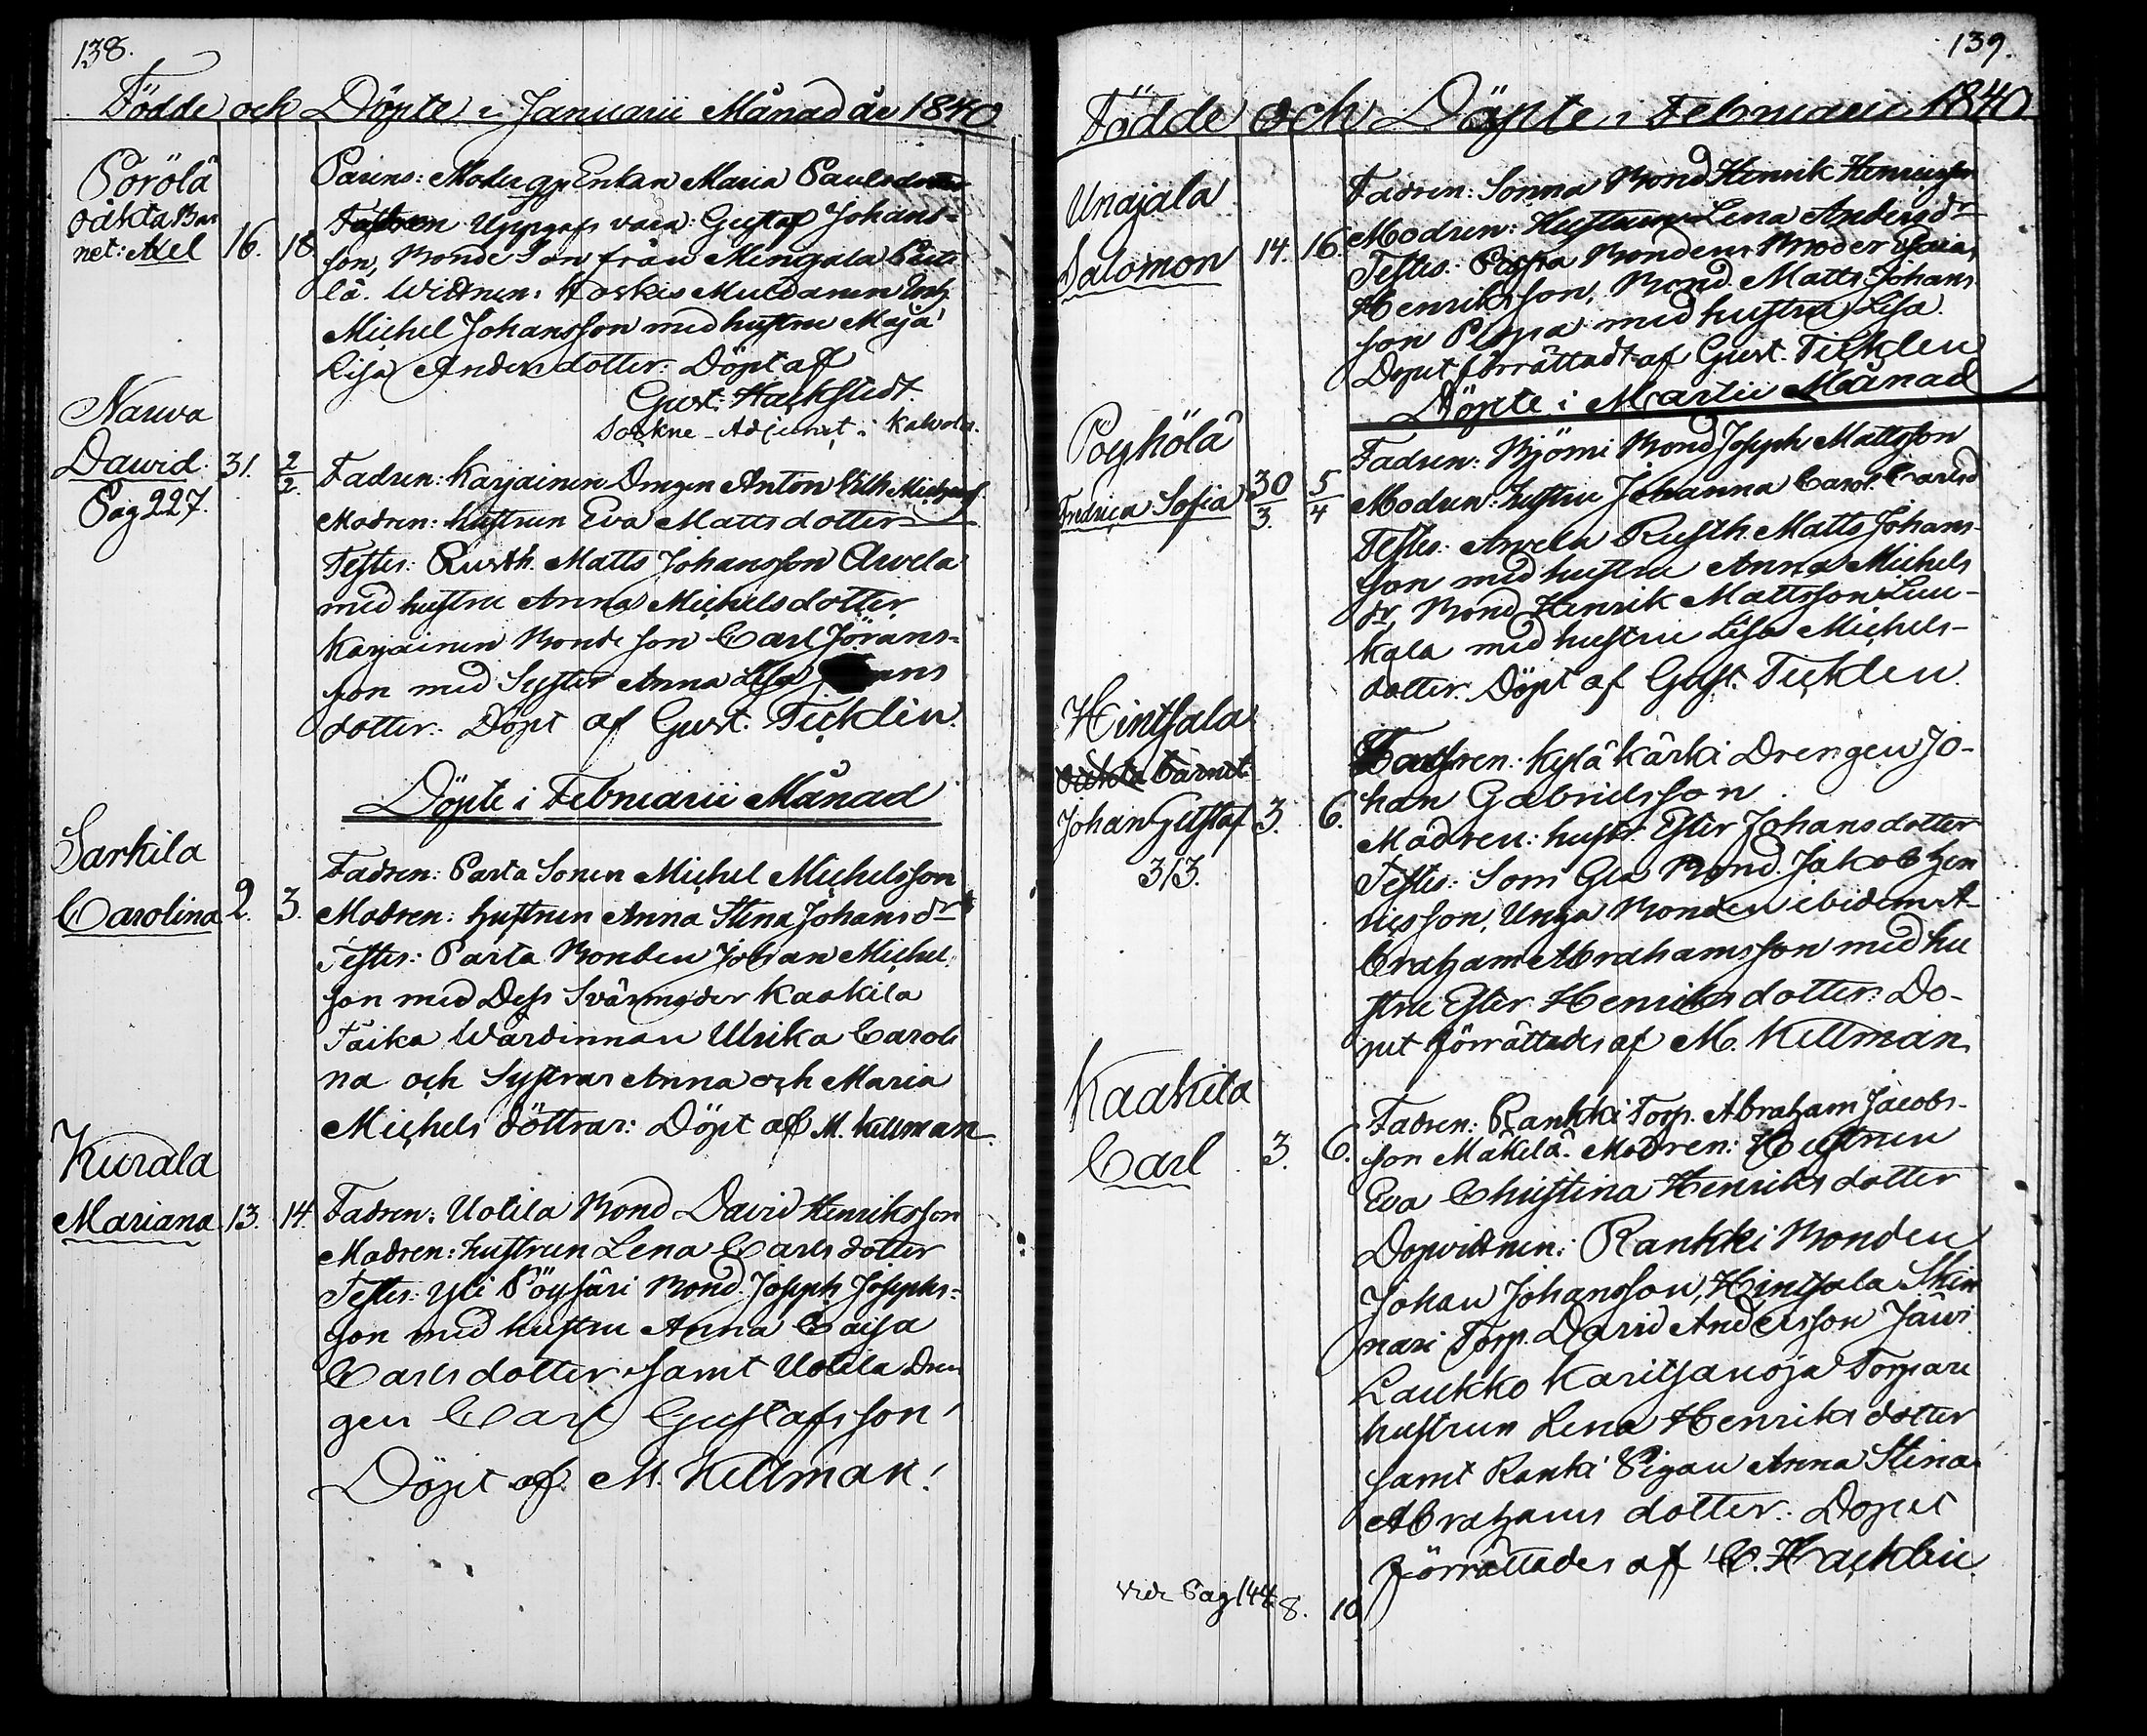 138.
Födde och Döpte i Januarii Månad år 1840
Pörölä
oäkta Bar
net: Axel 16. 18.
Parens: Moder Enkan Maria Paulsdotter
Fadren Uppgafs vara: Gustaf Johans-
son, Bonde Son från Mengala
lä. Witnen:
Michel Johansson med hustru Maja
Lisa Andersdotter: Döpt af
Gust: Hackstedt.
Sockne-Adjunct i Kalvola.
Nauva
Dawid. 31. 2/2.
Pag 227.
Fadren: Karjainen Drngen Anton
Modren: hustrun Eva Mattsdotter
Testes: Rusth. Matts Johansson Arvela
med hustru Anna Michelsdotter
Karjainen Bonde son Carl Jörans-
son med Syster Anna Lisa
dotter. Döpt af Gust. Ticklén.
Döpte i Februarii Månad
Sarkila
Carolina 2. 3.
Fadren: Parta Sonen Michel Michelsson
Modren: hustrun Anna Stina Johansdr
Testes: Parta Bonden Johan Michel-
son med Dess Svärmoder Kaakila
Taika Wärdinnan Ulrika Caroli
na och Systrar Anna och Maria
Michels döttrar: Döpt af M. Killman.
Kurala
Mariana 13. 14.
Fadren: Uotila Bond David Henriksson
Modren: hustrun Lena Carlsdotter
Testes: Yli Pöysäri Bond. Joseph Josephs-
son med hustru Anna Caisa
Carlsdotter samt Uotila Dren
gen Carl Gustafsson
Döpt af M. Killman.
139.
Födde och Döpte i Februarii 1840
Unajala
Salomon 14. 16.
Fadren: Sonna Bond Henrik Henriksson
Modren: Hustrun Lena Andersdr
Testes: Bonden Broder
Henriksson, Bond. Matts Johans
son med hustru Lisa.
Doput förrättadt af Gust. Ticklén
Döpte i Martii Månad
Pöyhölä
Fredrica Sofia 30/3. 5/4
Fadren: Björni Bond Joseph Mattsson
Modren: hustru Johanna Carol. Carlsd
Testes: Arvela Rusth. Matts Johans-
son med hustru Anna Michels
dr, Bond Henrik Mattsson Luu-
kala med hustru Lisa Michels-
dotter. Döpt af Gust. Ticklén.
Hintsala
Oäkta barnet
Johan Gustaf 3. 6.
313.
Fadren: Kylä Kärki Drengen Jo-
han Gabrielsson
Modren: hustr. Ester Johansdotter
Testes: Som Gea Bond. Jakob Hen
ricsson, Unga Bonden ibidem A-
braham Abrahamsson med hu
stru Ester Henriksdotter: Do-
put förrättades af M. Killman.
Kaakila
Carl 3. 6.
Fadren: Rankki Torp. Abraham Jacobs-
son Mäkilä. Modren: Hustrun
Eva Christina Henriksdotter
Dopvitnen: Rankki Bonden
Johan Johansson, Hintsala Skin
nari Torp. David Andersson Jävi
Laukko Karitsanoja Torpare
hustrun Lena Henriksdotter
samt Ranki Pigan Anna Stina
Abrahams dotter. Doput
förrättades af C. Hacklin.
Vide Pag 144 8. 10